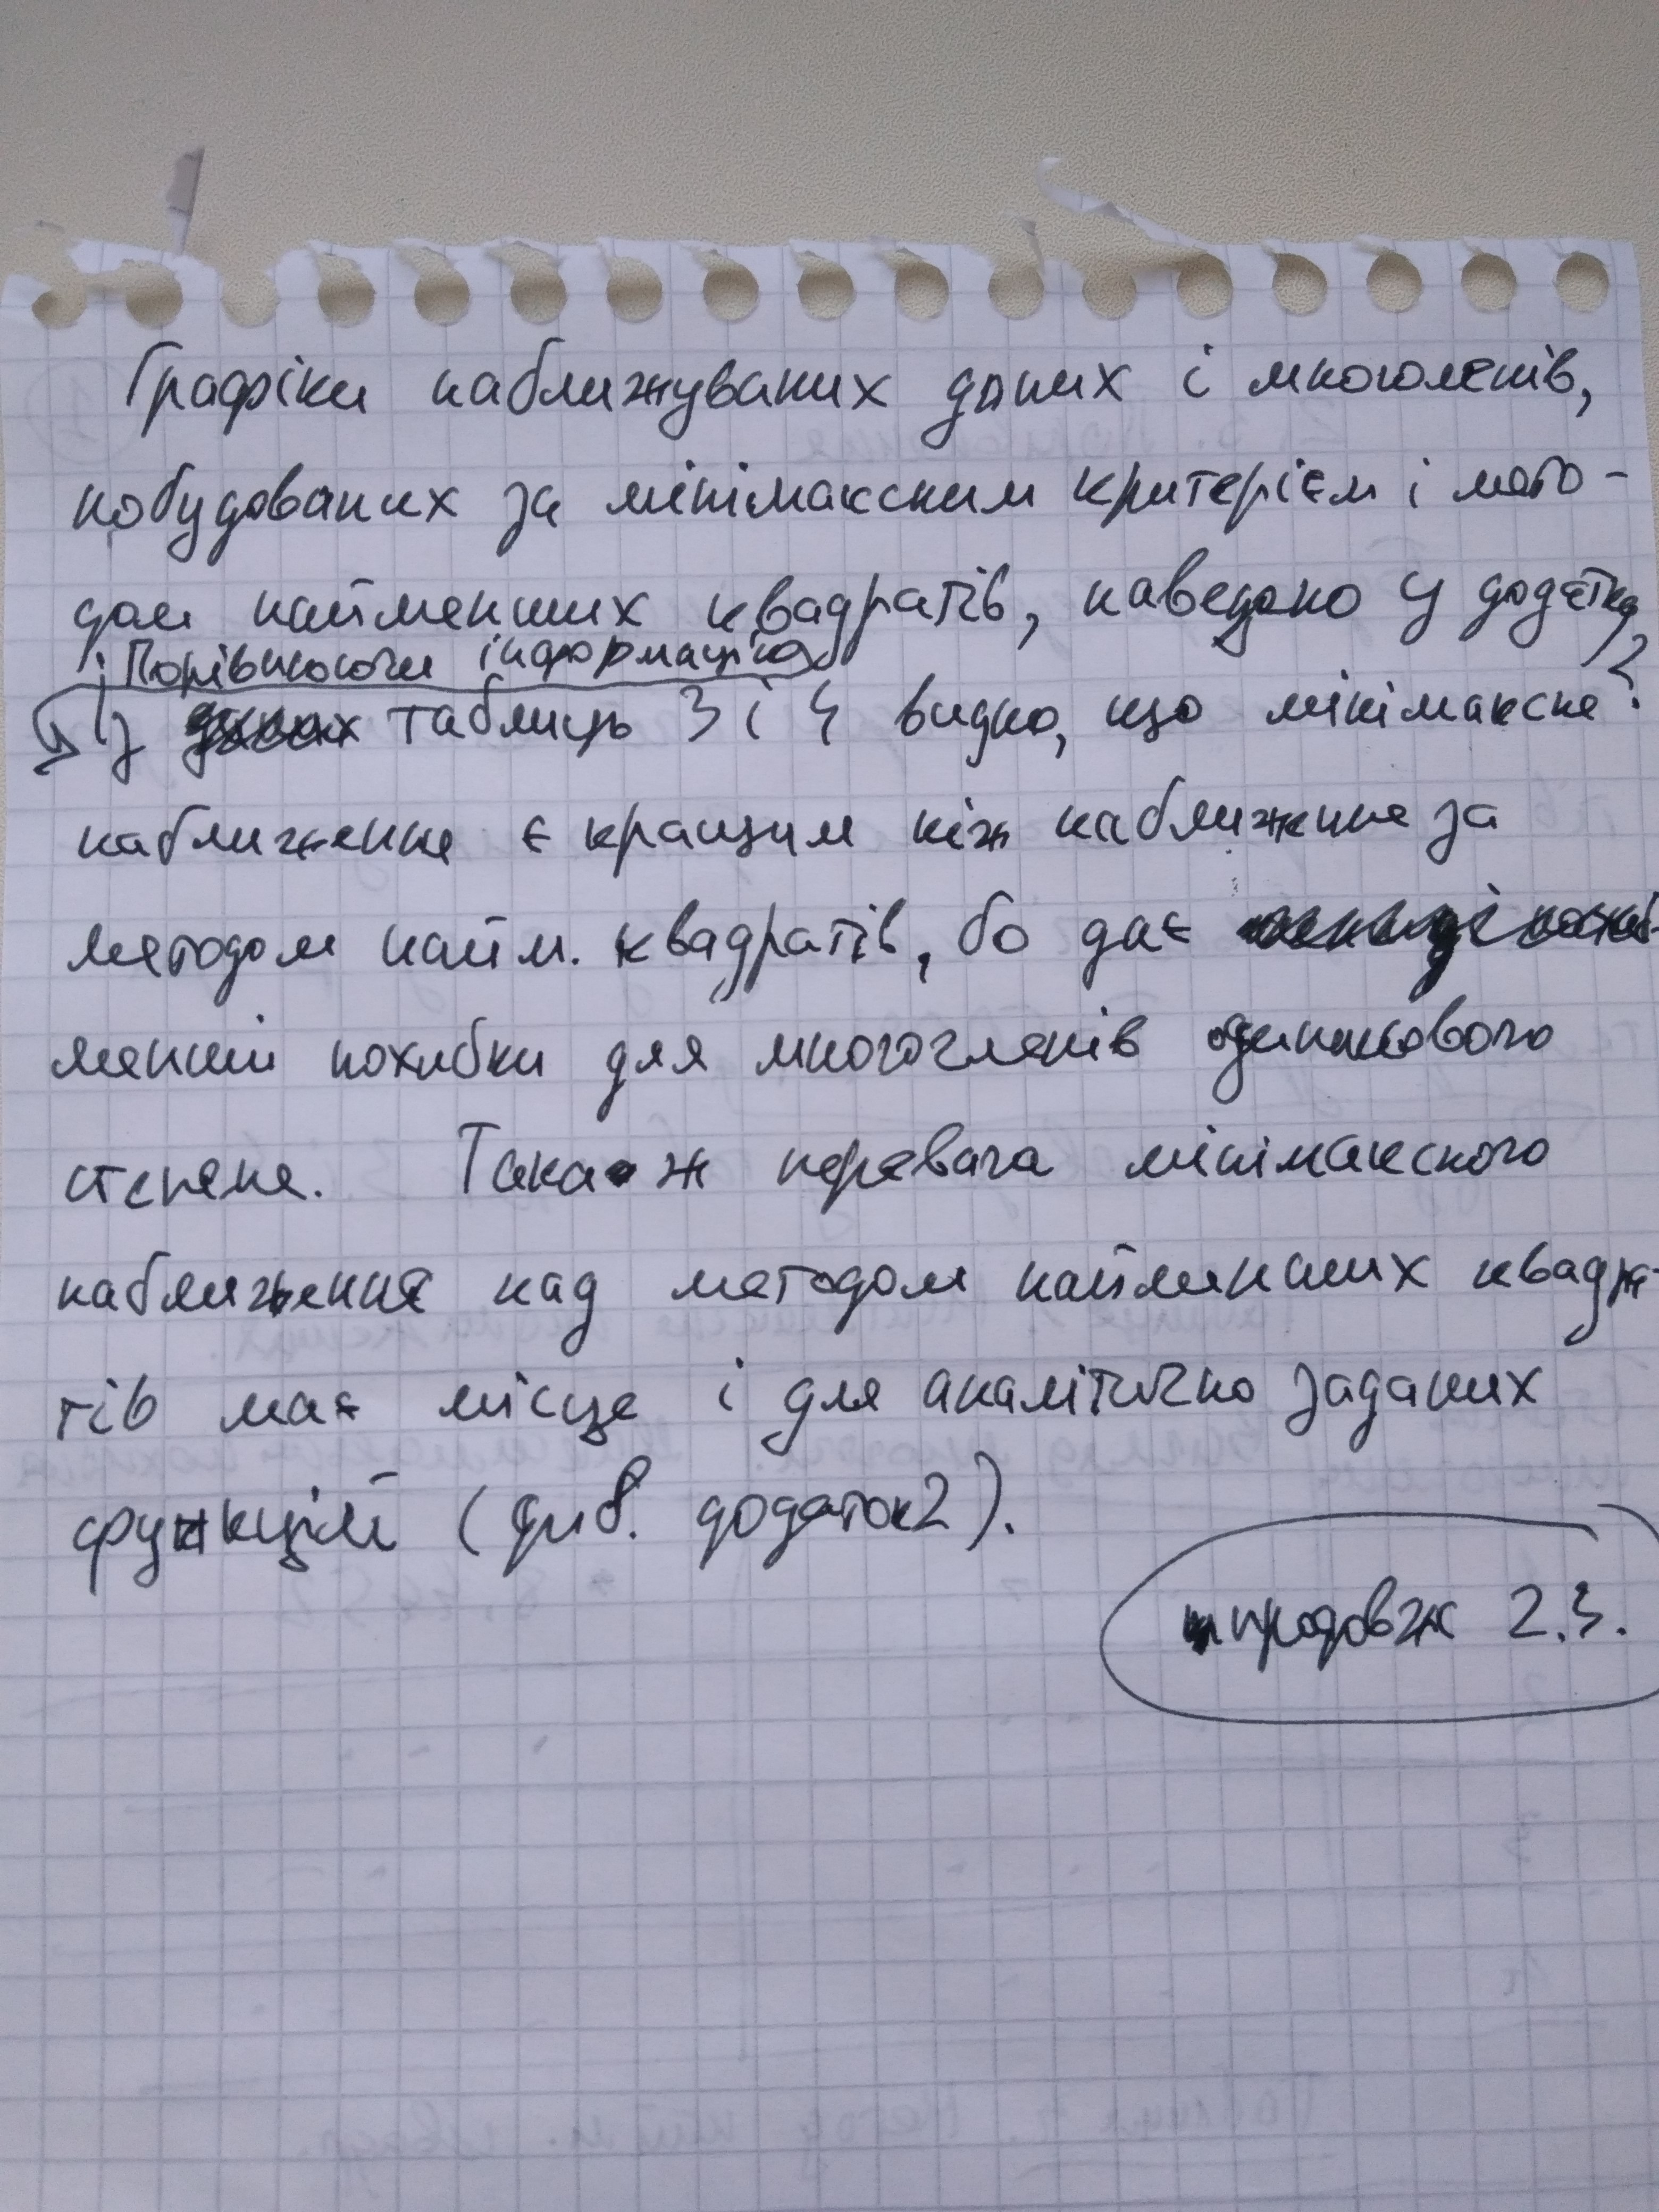 Графіки наближуваних даних і многоленів,
побудованих за мінімаксним критерієм і мето-
дом найменших квадратів, наведено у додатку
2.
Порівнюючи інформацію
з таблиць 3 і 4 видно, що мінімаксне
наближення є кращим ніж наближення за
методом найм. квадратів, бо дає
менші похибки для многочленів одинакового
степеня. Така ж перевага мінімаксного
наближення над методом найменших квадра-
тів має місце і для аналітично заданих
функцій (див. додаток 2).
продовж 2.3.